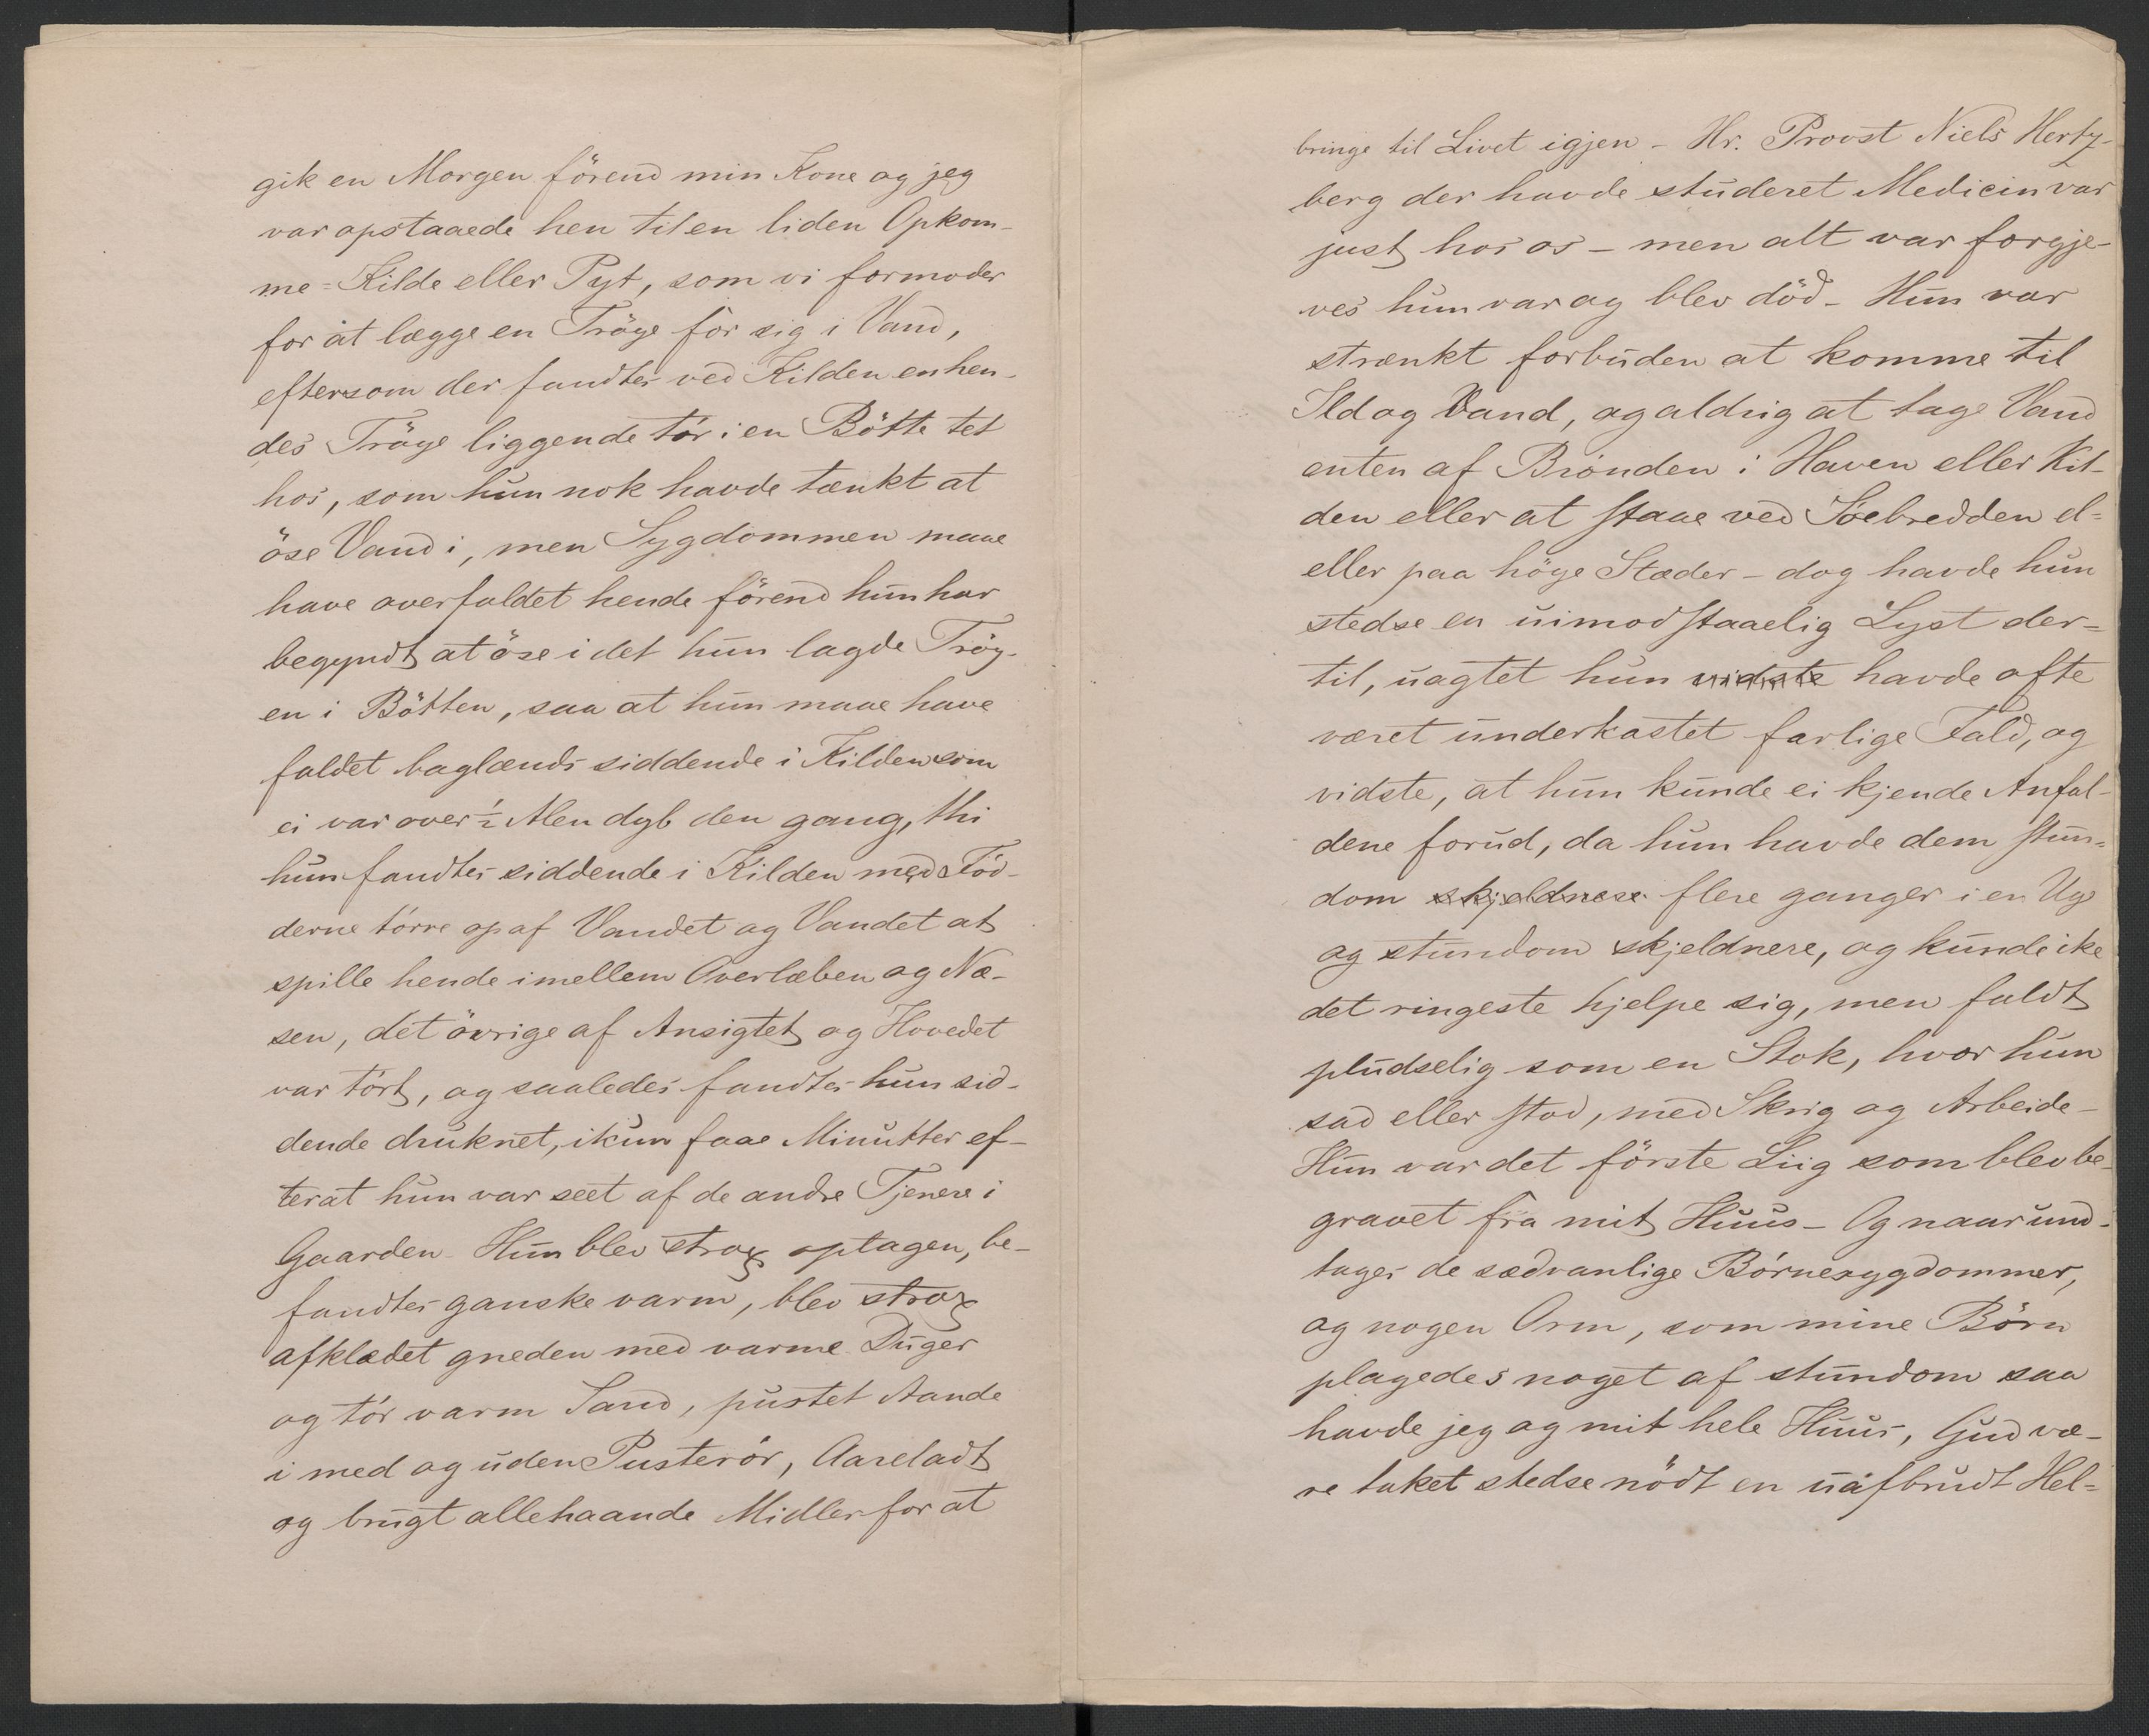 gik en Morgen förend min Kone og jeg
var opstaaede hen til en liden Opkom-
me=Kilde eller Pyt, som vi formoder
for at lægge en Tröye för sig i Vand,
eftersom der fandtes ved Kilden en hen-
des Tröye liggende tör i en Bötte tet
hos, som hun nok havde tænkt at
öse Vand i, men Sygdommen maae
have overfaldet hende förend hun har
begyndt at öse i det hun lagde Tröy-
en i Bötten, saa at hun maae have
faldet baglænds siddende i Kilden som
ei var over ½ Alen dyb den gang, thi
hun fandtes siddende i Kilden med Föd-
derne törre op af Vandet og Vandet at
spille hende imellem Overlæben og Næ-
sen, det övrige af Ansigtet og Hovedet
var tört, og saaledes fandtes hun sid-
dende druknet, ikun faae Minutter ef-
terat hun var seet af de andre Tjenere i
Gaarden - Hun blev strax optagen, be-
fandtes ganske varm, blev strax
afklædet gneden med varme Duger
og tör varm Sand, pustet Aande
i med og uden Pusterör, Aareladt
og brugt allehaande Midler for at
bringe til Livet igjen - Hr. Provst Niels Hertz-
berg der havde studeret Medicin var
just hos os - men alt var forgje-
ves hun var og blev död - Hun var
strænkt forbuden at komme til
Ild og Vand, og aldrig at tage Vand
enten af Brönden i Haven eller Kil-
den eller at staae ved Söebredden el=
eller paa höye Stæder - dog havde hun
stedse en uimodstaaelig Lyst der=
til, uagtet hun vidste havde ofte
været underkastet farlige Fald, og
vidste, at hun kunde ei kjende Anfal-
dene forud, da hun havde dem stun=
dom skjeldnere flere ganger i en Uge
og stundom skjeldnere, og kunde ike
det ringeste hjelpe sig, men faldt
pludselig som en Stok, hvor hun
sad eller stod, med Skrig og Arbeide -
Hun var det förste Liig som blev be-
gravet fra mit Huus - Og naar und-
tages de sædvanlige Börnesygdommer,
og nogen Orm, som mine Börn
plagedes noget af stundom saa
havde jeg og mit hele Huus, Gud væ-
re taket stedse nödt en uafbrudt Hel=